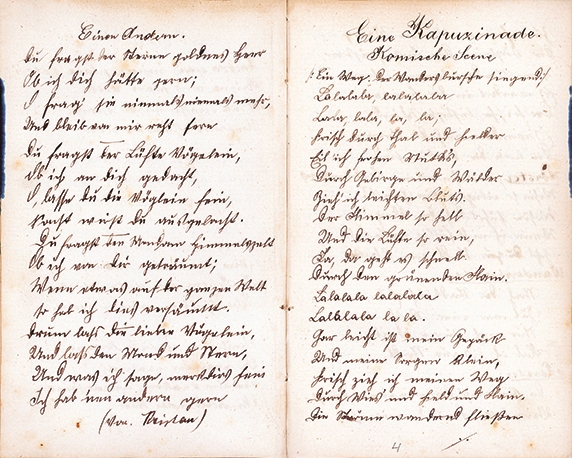 Einen Andern.
Du fragst der Sterne goldnes Heer
Ob ich dich hätte gern;
O frag sie niemals niemals mehr,
Und bleib von mir recht fern
Du fragst der Lüfte Vögelein,
Ob ich an dich gedacht,
O, lasse du die Vöglein sein,
sonst wirst du ausgelacht.
Du fragst den Himmelszelt
Ob ich von dir geträumt;
Wenn etwas auf der ganzen Welt
so hab ich dies versäumt.
Drum lass die lieben Vögelein,
Und lass den Mond und Stern,
Und was ich sage, merk dies fein
Ich hab nen andern gern
(Von. Tristan)
Eine Kapuzinade.
Komische Scene
Ein Weg, der Wandersbursche singend:
Lalalala, lalalala
Lala, lala, la, la;
Frisch durch Thal und Felder
Eil ich frohen Muths,
Durch Gebirge und Wälder
Zieh ich leichten Bluts.
Der Himmel so hell
Und die Lüfte so rein,
Ha, da geht es schnell
Durch den grünenden Hain.
Lalalala lalalala
Lalalala la la.
Gar leicht ist mein Gepäck
Und meine Sorgen klein,
Frisch zieh ich meinen Weg
Durch Wies und Feld und Hain.
Die Ströme wandernd fließen
4